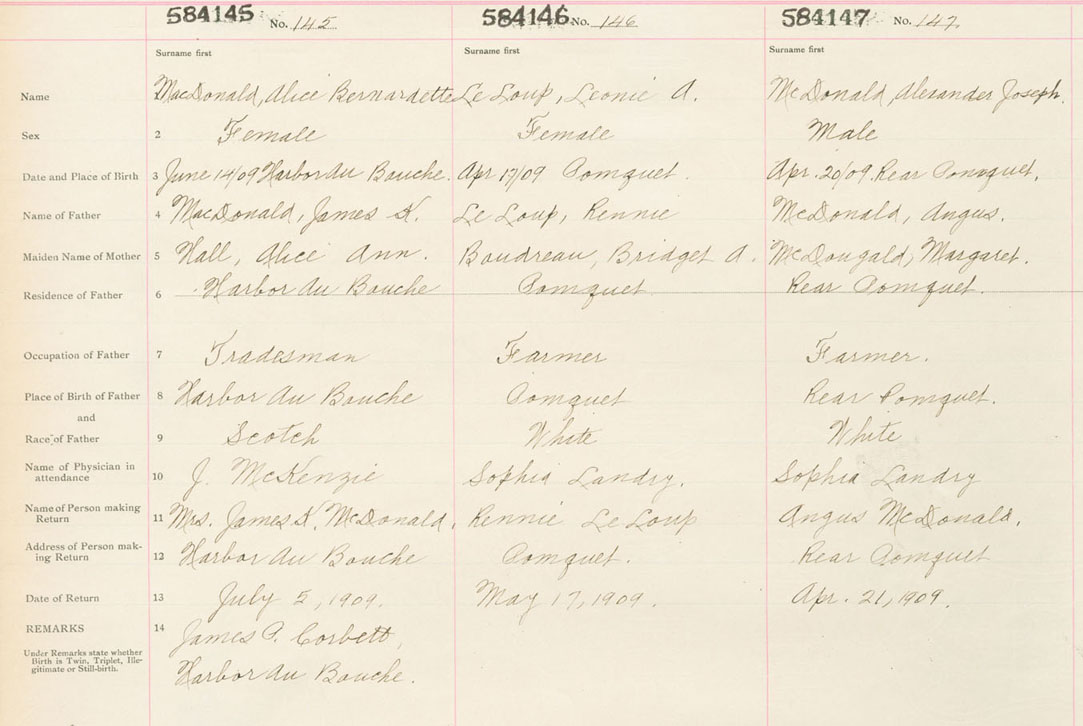 584145 No. 145 584146 No. 146 584147 No. 147
Surname first Surname first Surname first
Name MacDonald, Alice Bernardette Le Loup, Leonie A. McDonald, Alexander Joseph.
Sex 2 Female Female Male
Date and Place of Birth 3 June 14/09 Harbor Au Bouche. Apr 17/09 Pomquet. Apr. 20/09. Rear Pomquet.
Name of Father 4 MacDonald, James K. Le Loup, Rennie McDonald, Angus.
Maiden Name of Mother 5 Hall, Alice Ann. Boudreau, Bridget A. McDougald, Margaret.
Residence of Father 6 Harbor Au Bouche Pomquet Rear Pomquet.
Occupation of Father 7 Tradesman Farmer Farmer.
Place of Birth of Father 8 Harbor Au Bouche Pomquet Rear Pomquet.
and
Race of Father 9 Scotch White White
Name of Physician in
attendance 10 J. McKenzie Sophia Landry. Sophia Landry
Name of Person making
Return 11 Mrs. James K. McDonald. Rennie Le Loup Angus McDonald.
Address of Person mak-
ing Return 12 Harbor Au Bouche Pomquet. Rear Pomquet
Date of Return 13 July 5, 1909. May 17, 1909. Apr. 21, 1909.
REMARKS 14 James P. Corbett,
Under Remarks state whether
Birth is Twin, Triplet, Ille-
gitimate or Still-birth.
Harbor Au Bouche.